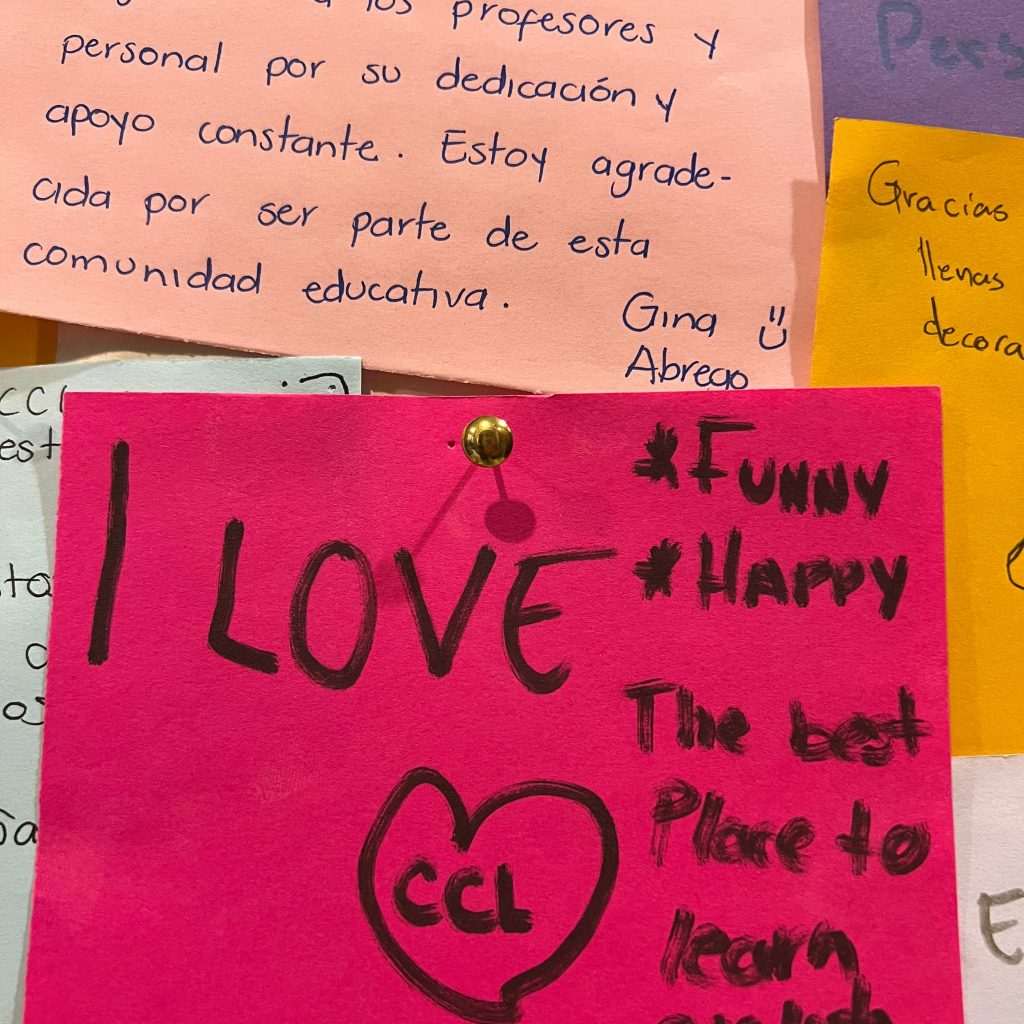 a los profesores y
personal por su dedicación y
apoyo constante. Estoy agrade-
cida por ser parte de esta
comunidad educativa.
Gina
Abrego
Pers
Gracias
llenas
decora
CCL
est
I LOVE
CCL
*Funny
*Happy
The best
Place to
learn
english
E